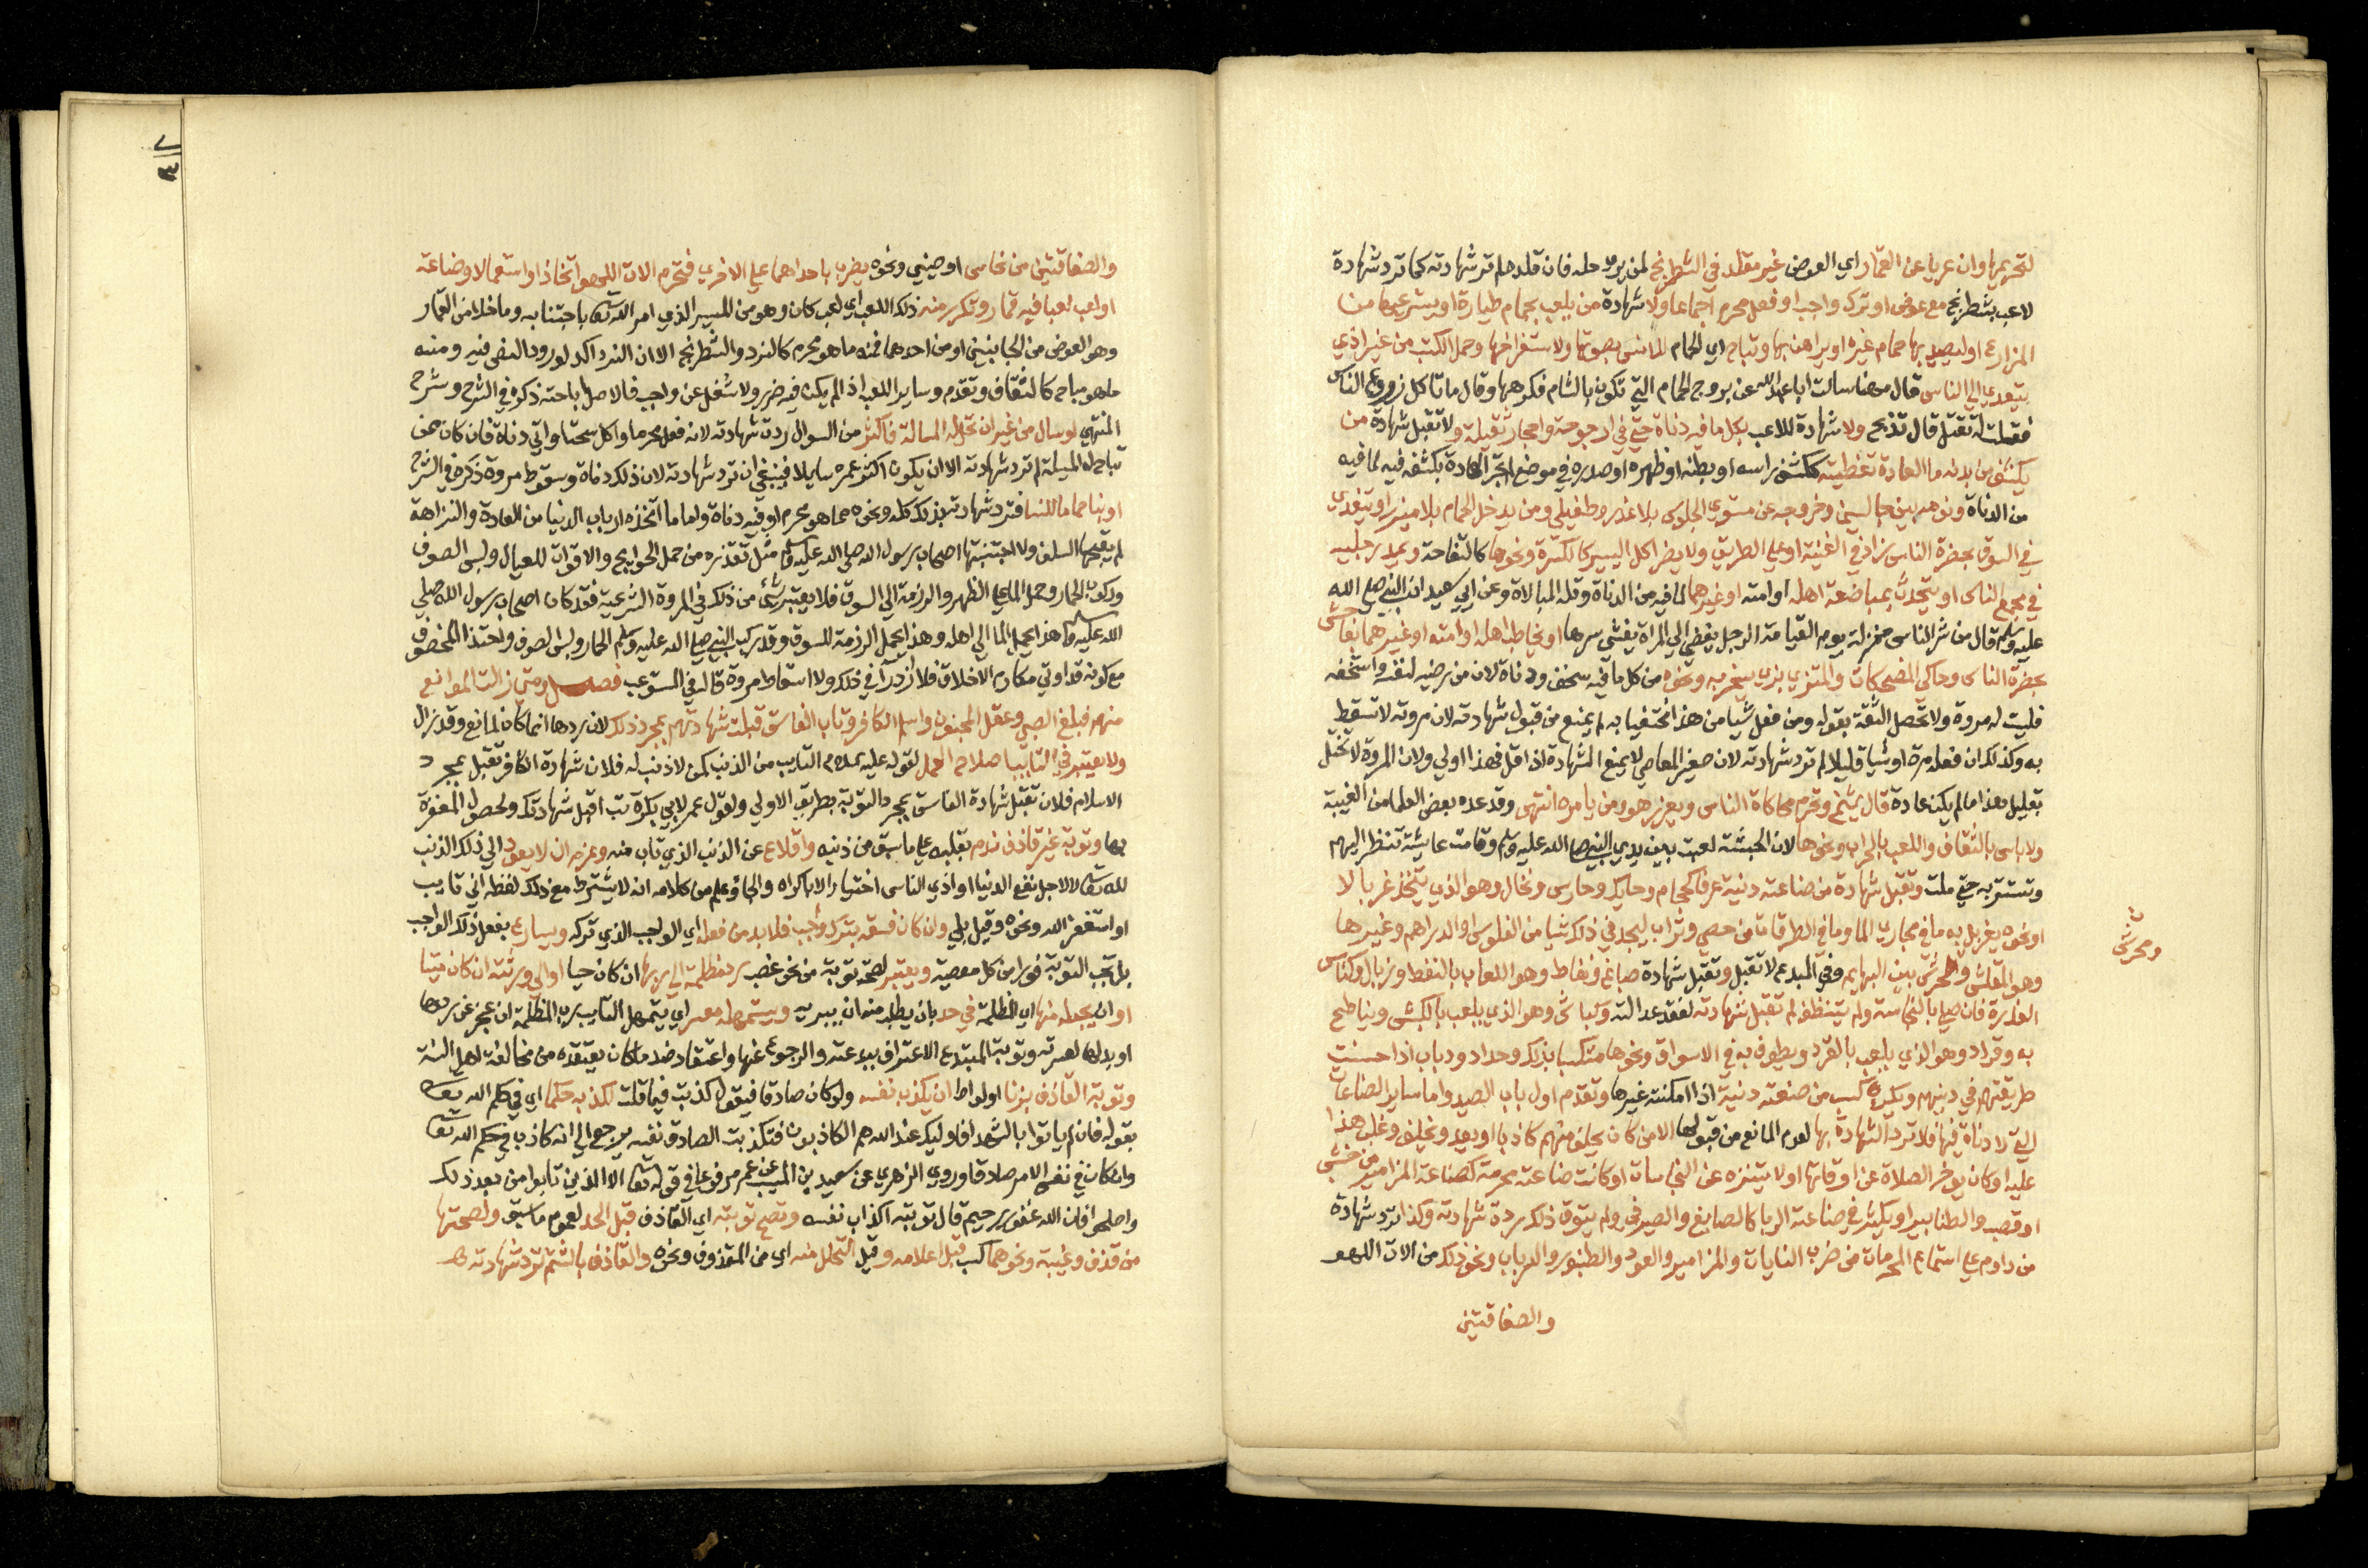 لتحريمها وان عريا عن القمار اي العوض غير مقلد في الشطرنج لمن يري حله فان قلد هلم ترد شهادته كما ترد شهادة
لاعب بشطرنج مع عوض او ترك واجب او فعل محرم اجماعا ولا شهادة من يلعب بحمام طيارة او يسترعيها من
المزارع او ليصيد بها حمام غيره او يراهن بها وتباح اي الحمام للانس بصوتها ولاستفراخها وحمل الكتب من غير اذي
يتعدي الي الناس قال مهنا سالت ابا عبدالله عن بروج الحمام التي تكون بالشام فكرهها وقال ما تاكل زروع الناس
فقلت له تقتل قال تذبح ولا شهادة للاعب بكل ما فيه دناة حتي في ارجوحة واحجار ثقيلة ولا تقبل شهادة من
يكشف من بدنه ما العادة تغطيته ككشف راسه او بطنه او ظهره او صدره في موضع لم تجر العادة بكشفه فيه لما فيه
من الدناة ونومه بين جالسين وخروجه عن مستوي الجلوس بلا عذر وطفيلي ومن يدخل الحمام بلا ميزر او يتغدي
في السوق بحضرة الناس زاد في الغنية او علي الطريق ولا يضر اكل اليسير كالكسرة ونحوها كالتفاحة ويمد رجليه
في مجمع الناس او يتحدث بمباضعة اهله او امته او غيرهما لما فيه من الدناة وقلة المبالاة وعن ابي سعيد ان النبي صلي الله
عليه وسلم قال من شر الناس منزلة يوم القيامة الرجل يفضي الي المراة يفشي سرها او يخاطب اهله او امته او غيرهما بفاحش
بحضرة الناس وحاكي المضحكات والمتزي بزي يسخر به ونحوه من كل ما فيه سخف ودناة لان من رضيه لنفسه واستخفه
فليست له مروة ولا تحصل الثقة بقوله ومن فعل شيا من هذا مختفيا به لم يمنع من قبول شهادته لان مروته لا تسقط
به وكذلك ان فعله مرة او شيا قليلا لم ترد شهادته لان صغير المعاصي لا يمنع الشهادة اذا قل فهذا اولي ولان المروة لا تختل
بقليل هذا ما لم يكن عادة قال الشيخ وتحرم محاكاة الناس ويعزر هو ومن يامره انتهي وقد عده بعض العلما من الغيبة
ولا باس بالثقاف واللعب بالحراب ونحوها لان الحبشة لعبت بين يدي النبي صلي الله عليه وسلم وقامت عايشة تنظر اليهم
وتستتر به حتي ملت وتقبل شهادة من صناعته دنية عرفا كحجام وحايك وحارس ونخال وهو الذي يتخذ غربالا
او نحوه يغربل به ما في مجاري الما وما في الطرقات من حصي وتراب ليجد في ذلك شيا من الفلوس او الدراهم وغيرها
وهو المقلش والمحرش بين البهايم وفي المبدع لا تقبل وتقبل شهادة صباغ ونفاط وهو اللعاب بالنفط وزبال وكناس
العذرة فان صلي بالنجاسة ولم يتنظف لم تقبل شهادته لفقد عدالته وكباش وهو الذي يلعب بالكبش ويناطح
به وقراد وهو الذي يلعب بالقرد ويطوف به في الاسواق ونحوها متكسبا بذلك وحداد ودباب اذا حسنت
طريقتهم في دينهم ويكره كسب من صنعته دنية اذا امكنته غيرها وتقدم اول باب الصيد واما ساير الصناعات
التي لا دناة فيها فلا ترد الشهادة بها لعدم المانع من قبولها الا من كان يحلف منهم كاذبا او يعد ويخلف وغلب هذا
عليه او كان يوخر الصلاة عن اوقاتها او لا يتنزه عن النجاسات او كانت صناعته محرمة كصناعة المزامير من خشب
او قصب والطنابير او يكثر في صناعته الربا كالصايغ والصيرفي ولم يتوق ذلك ردت شهادته وكذا ترد شهادة
من داوم علي استماع المحرمات من ضرب النايات والمزامير والعود والطنبور والرباب ونحو ذلك من الات اللهو
والصفاقتين
ومحرش
والصفاقتين من نحاس او صيني ونحوه يضرب باحداهما علي الاخري فتحرم الات اللهو اتخاذا واستعمالا وصناعة
او لعب لعبا فيه قمار وتكرر منه ذلك اللعب اي لعب كان وهو من الميسر الذي امر الله تعالي باجتنابه وما خلا من القمار
وهو العوض من الجانبين او من احدهما فمنه ما هو محرم كالنرد والشطرنج الا ان النرد اكد لورود النص فيه ومنه
ما هو مباح كالثقاف وتقدم وساير اللعب اذا لم يكن فيه ضرر ولا شغل عن واجب فالاصل اباحته ذكره في الشرح وشرح
المنتهي لو سال من غير ان تحل له المسالة فاكثر من السوال ردت شهادته لانه فعل محرما واكل سحتا واتي دناة فان كان ممن
تباح له المسلة لم ترد شهادته الا ان يكون اكثر عمره سايلا فينبغي ان ترد شهادته لان ذلك دناة وسقوط مروة ذكره في الشرح
او بنا حماما للنسا فترد شهادته بذلك كله ونحوه مما هو محرم او فيه دناة واما ما اتخذه ارباب الدنيا من العادة والنزاهة
لم يقبحها السلف ولا اجتنبتها اصحاب رسول الله صلي الله عليه وسلم مثل تقذره من حمل الحوايج والاقوات للعيال ولبس الصوف
وركوب الحمار وحمل الما علي الظهر والرزمة الي السوق فلا يعتبر شئ من ذلك في المروة الشرعية فقد كان اصحاب رسول الله صلي
الله عليه وسلم هذا يحمل الما الي اهله وهذا يحمل الرزمة للسوق وقد ركب النبي صلي الله عليه وسلم الحمار ولبس الصوف واحتذا المخصوف
مع كونه قد اوتي مكارم الاخلاق فلا ازدرا في ذلك ولا اسقاط مروة قاله في المستوعب فصل ومتي زالت الموانع
منهم فبلغ الصبي وعقل المجنون واسلم الكافر وتاب الفاسق قبلت شهادتهم بمجرد ذلك لان ردها انما كان لمانع وقد زال
ولا يعتبر في التايب اصلاح العمل لقوله عليه السلام التايب من الذنب كمن لا ذنب له فلان شهادة الكافر تقبل بمجرد
الاسلام فلان تقبل شهادة الفاسق بمجرد التوبة بطريق الاولي ولقول عمر لابي بكرة تب اقبل شهادتك ولحصول المغفرة
بها وتوبة غير قاذف ندم بقلبه علي ما سبق من ذنبه واقلاع عن الذنب الذي تاب منه وعزم ان لا يعود الي ذلك الذنب
لله تعالي لا لاجل نفع الدنيا او اذي الناس اختيارا لا باكراه والجا وعلم من كلامه انه لا يشترط مع ذلك لفظه اني تايب
او استغفر الله ونحوه وقيل بلي وان كان فسقه بترك واجب فلا بد من فعله اي الواجب الذي تركه ويسارع بفعل ذلك الواجب
بل تجب التوبة فورا من كل معصية ويعتبر لصحة توبة من نحو غصب رد مظلمة الي ربها ان كان حيا او الي ورثته ان كان ميتا
او ان يجعله منها اي المظلمة في حل بان يطلب منه ان يبريه ويستمهله معسر اي يستمهل التايب رب المظلمة ان عجز عن ردها
او بدلها لعسرته وتوبة المبتدع الاعتراف ببدعته والرجوع عنها واعتقاد ضد ما كان يعتقده من مخالفة اهل السنة
وتوبة القاذف بزنا او لواط ان يكذب نفسه ولو كان صادقا فيقول كذبت فيما قلت لكذبه حكما اي في حكم الله تعالي
بقوله فان لم ياتوا بالشهدا فاوليك عند الله هم الكاذبون فتكذيب الصادق نفسه يرجع الي انه كاذب في حكم الله تعالي
وان كان في نفس الامر صادقا وروي الزهري عن سعيد بن المسيب عن عمر مرفوعا في قوله تعالي الا الذين تابوا من بعد ذلك
واصلحوا فان الله غفور رحيم قال توبته اكذاب نفسه وتصح توبته اي القاذف قبل الحد لعموم ما سبق ولصحتها
من قذف وغيبة ونحوهما كسب قبل اعلامه وقبل التحلل منه اي من المقذوف ونحوه والقاذف بالشتم ترد شهادته